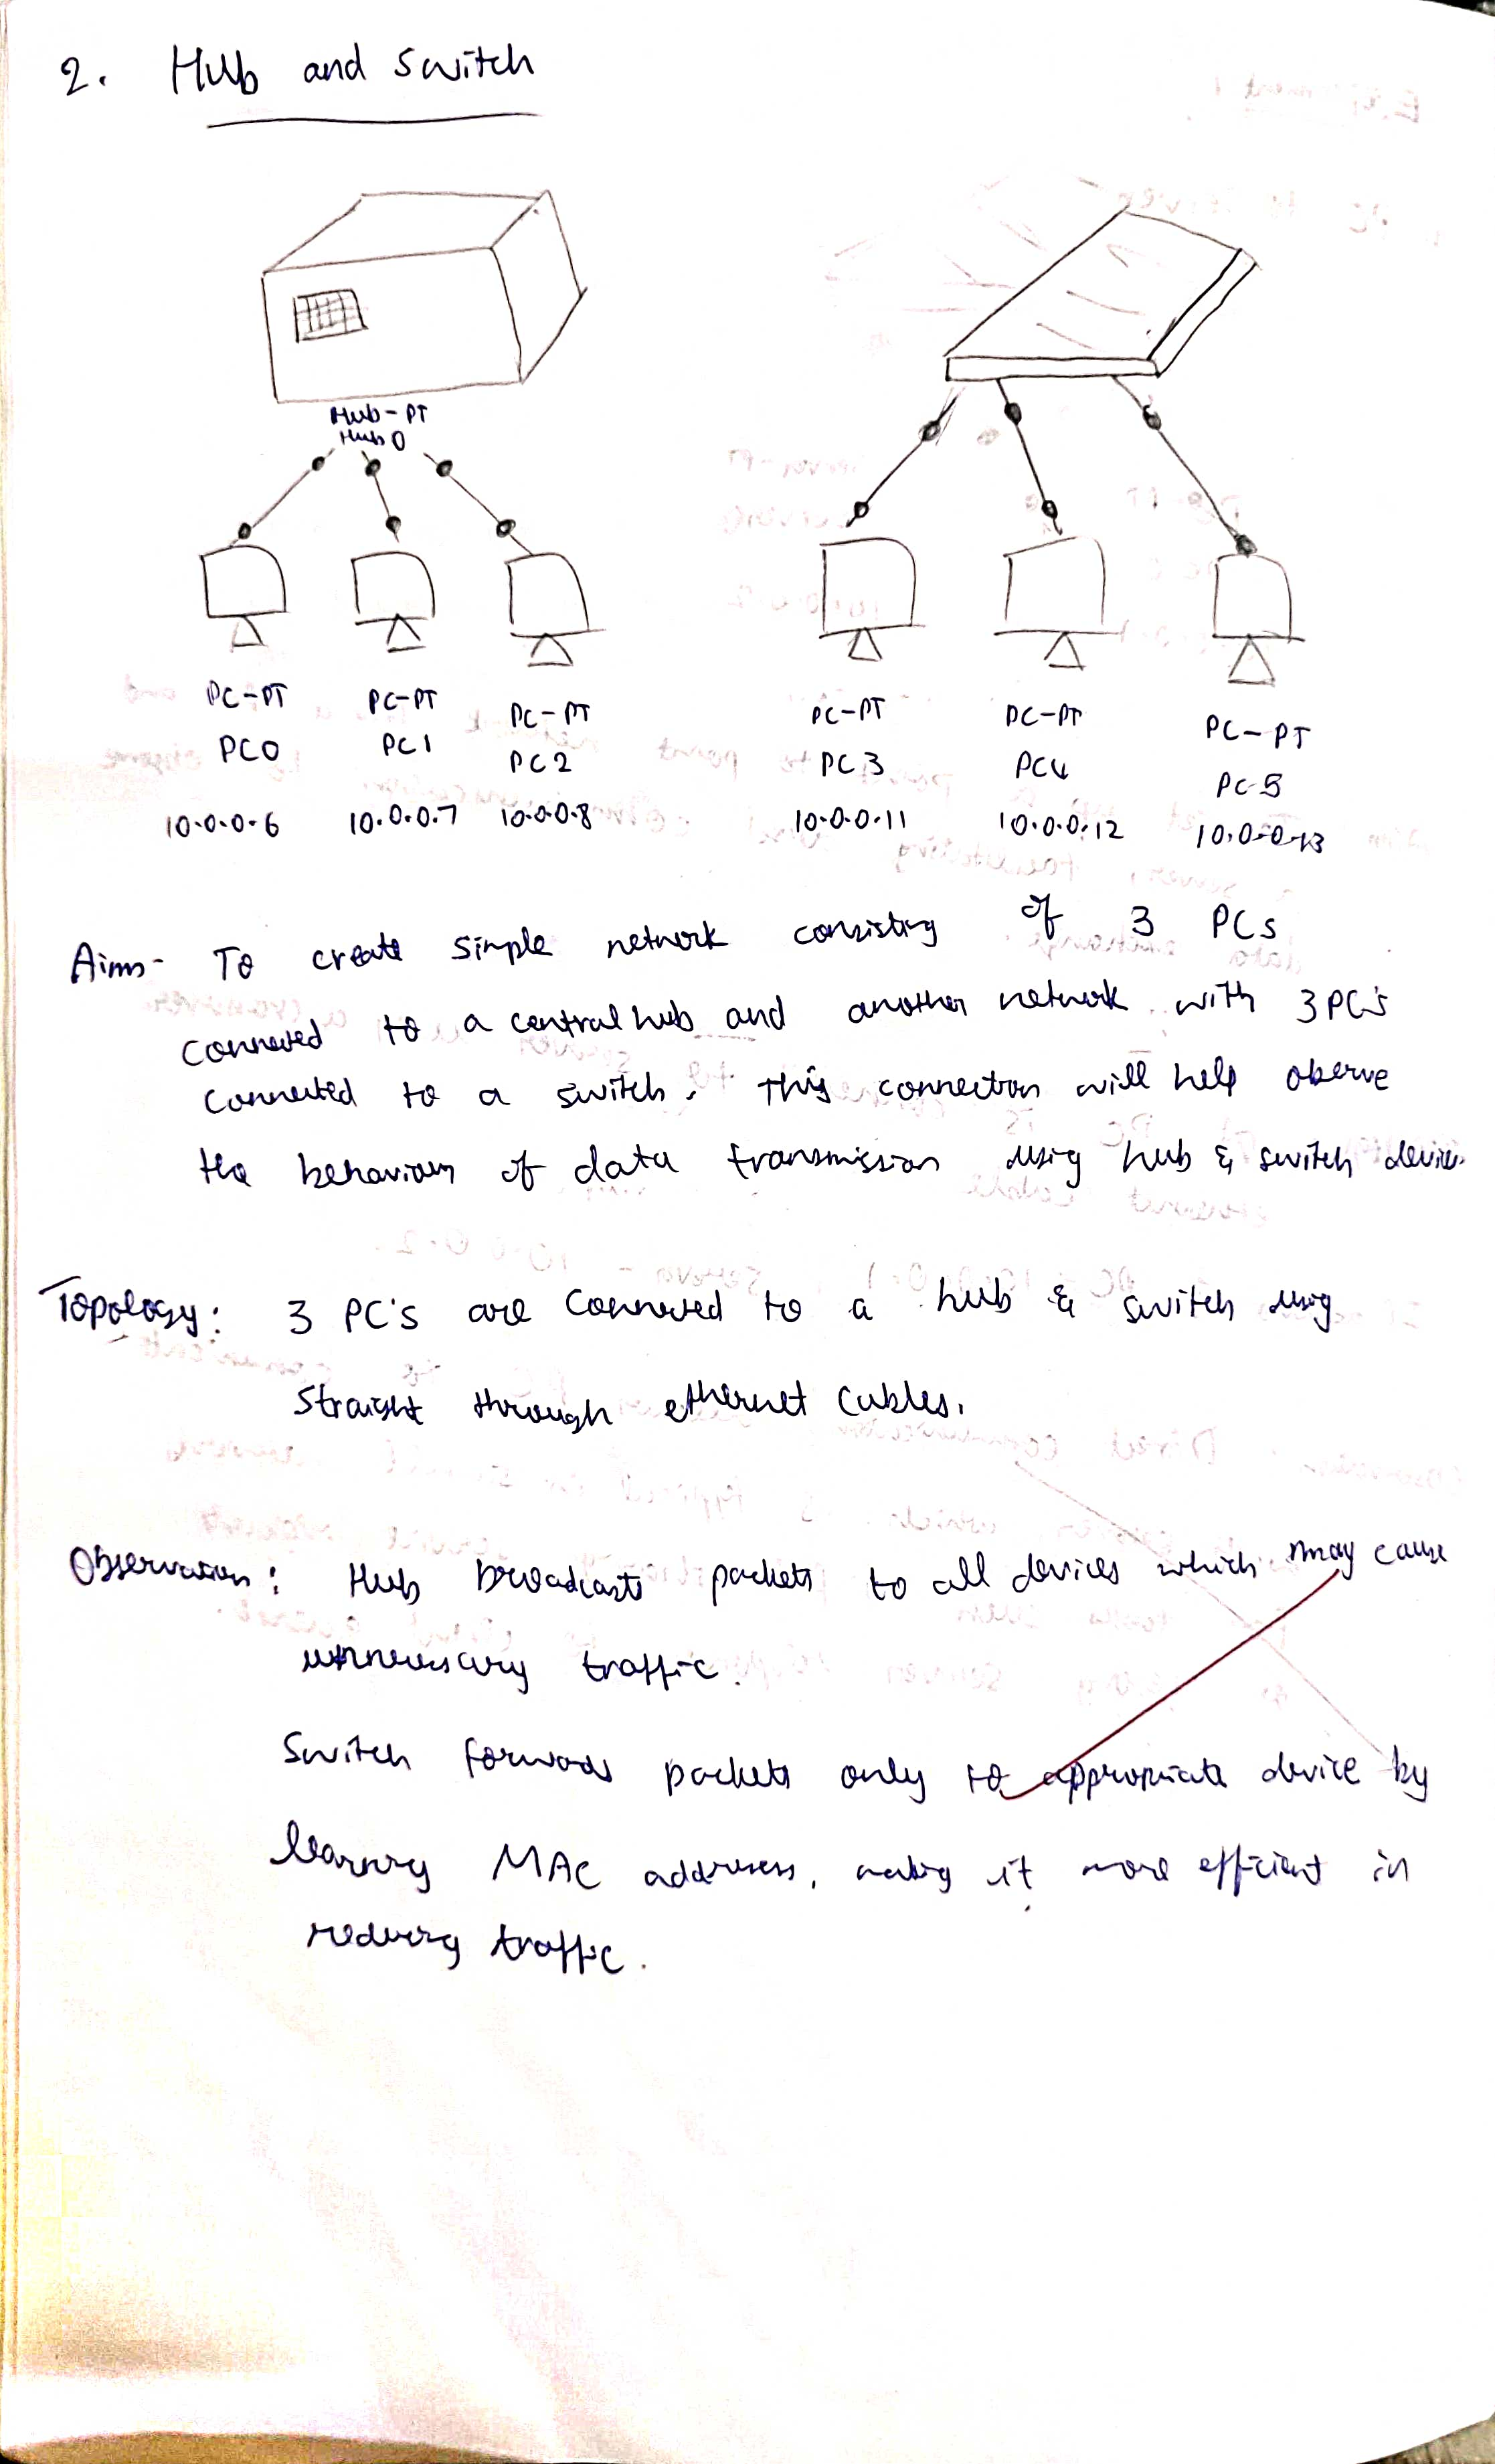 2. Hub and switch
Hub-PT
Hub 0
PC-PT PC-PT PC-PT PC-PT PC-PT PC-PT
PC0 PC1 PC2 PC3 PC4 PC5
10.0.0.6 10.0.0.7 10.0.0.8 10.0.0.11 10.0.0.12 10.0.0.13
Aim- To create simple network consisting of 3 PCs
connected to a central hub and another network with 3 PC's
connected to a switch. This connection will help oberve
the behaviour of data transmission using hub & switch devices.
Topology: 3 PC's are connected to a hub & switch using
straight through ethernet cables.
Observation: Hub broadcasts packets to all devices which may cause
unnecessary traffic.
Switch forwads packets only to appropriate device by
learning MAC addresses, making it more efficient in
reducing traffic.